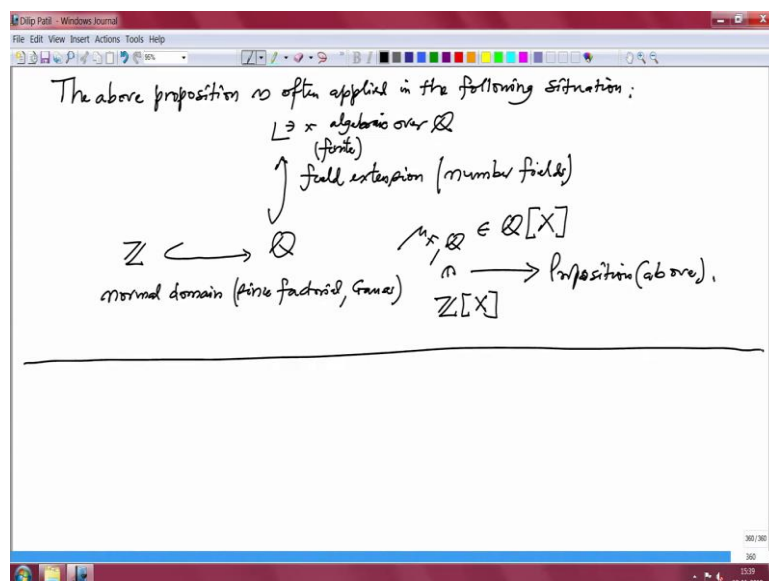 Dilip Patil - Windows Journal
File Edit View Insert Actions Tools Help
96%
The above proposition is often applied in the following situation:
L ∋ x algebraic over ℚ
(finite)
field extension (number fields)
ℤ ↪ ℚ
μ_{x,ℚ} ∈ ℚ[X]
normal domain (since factorial, Gauss)
∩ → Proposition (above).
ℤ[X]
360/360
360
15:39